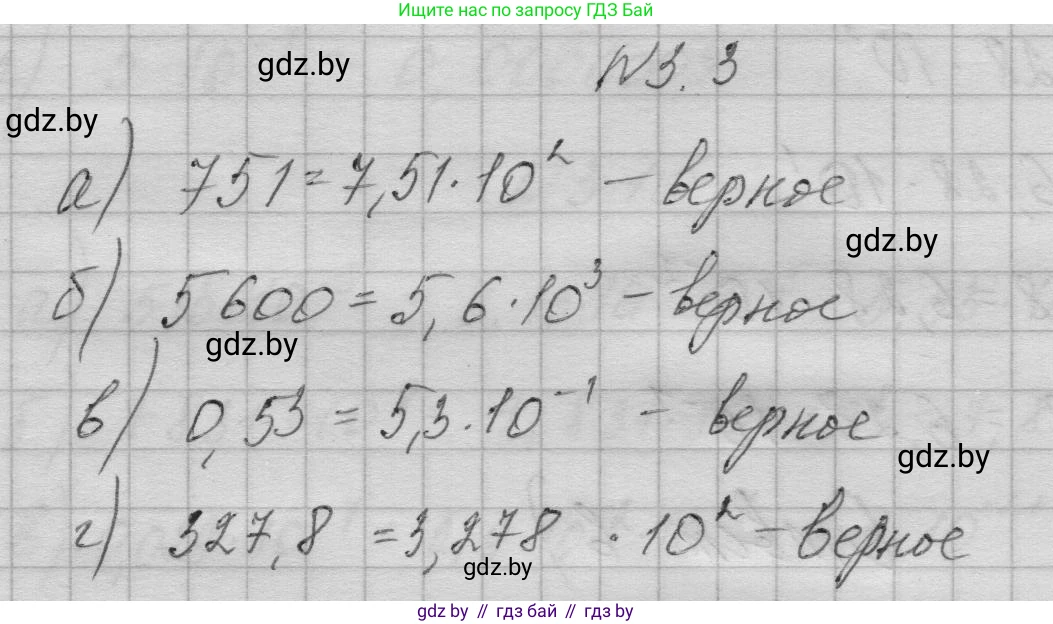 Ищите нас по запросу ГДЗ Бай
gdz.by
№3.3
gdz.by
а) 751 = 7,51 · 10² — верное
gdz.by
б) 5600 = 5,6 · 10³ – верное
gdz.by
в) 0,53 = 5,3 · 10⁻¹ – верное
gdz.by
г) 327,8 = 3,278 · 10² – верное
gdz.by
gdz by // гдз бай // гдз by